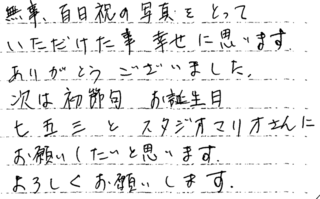 無事、百日祝の写真をとって
いただけた事 幸せに思います
ありがとうございました。
次は初節句 お誕生日
七五三とスタジオマリオさんに
お願いしたいと思います.
よろしくお願いします.